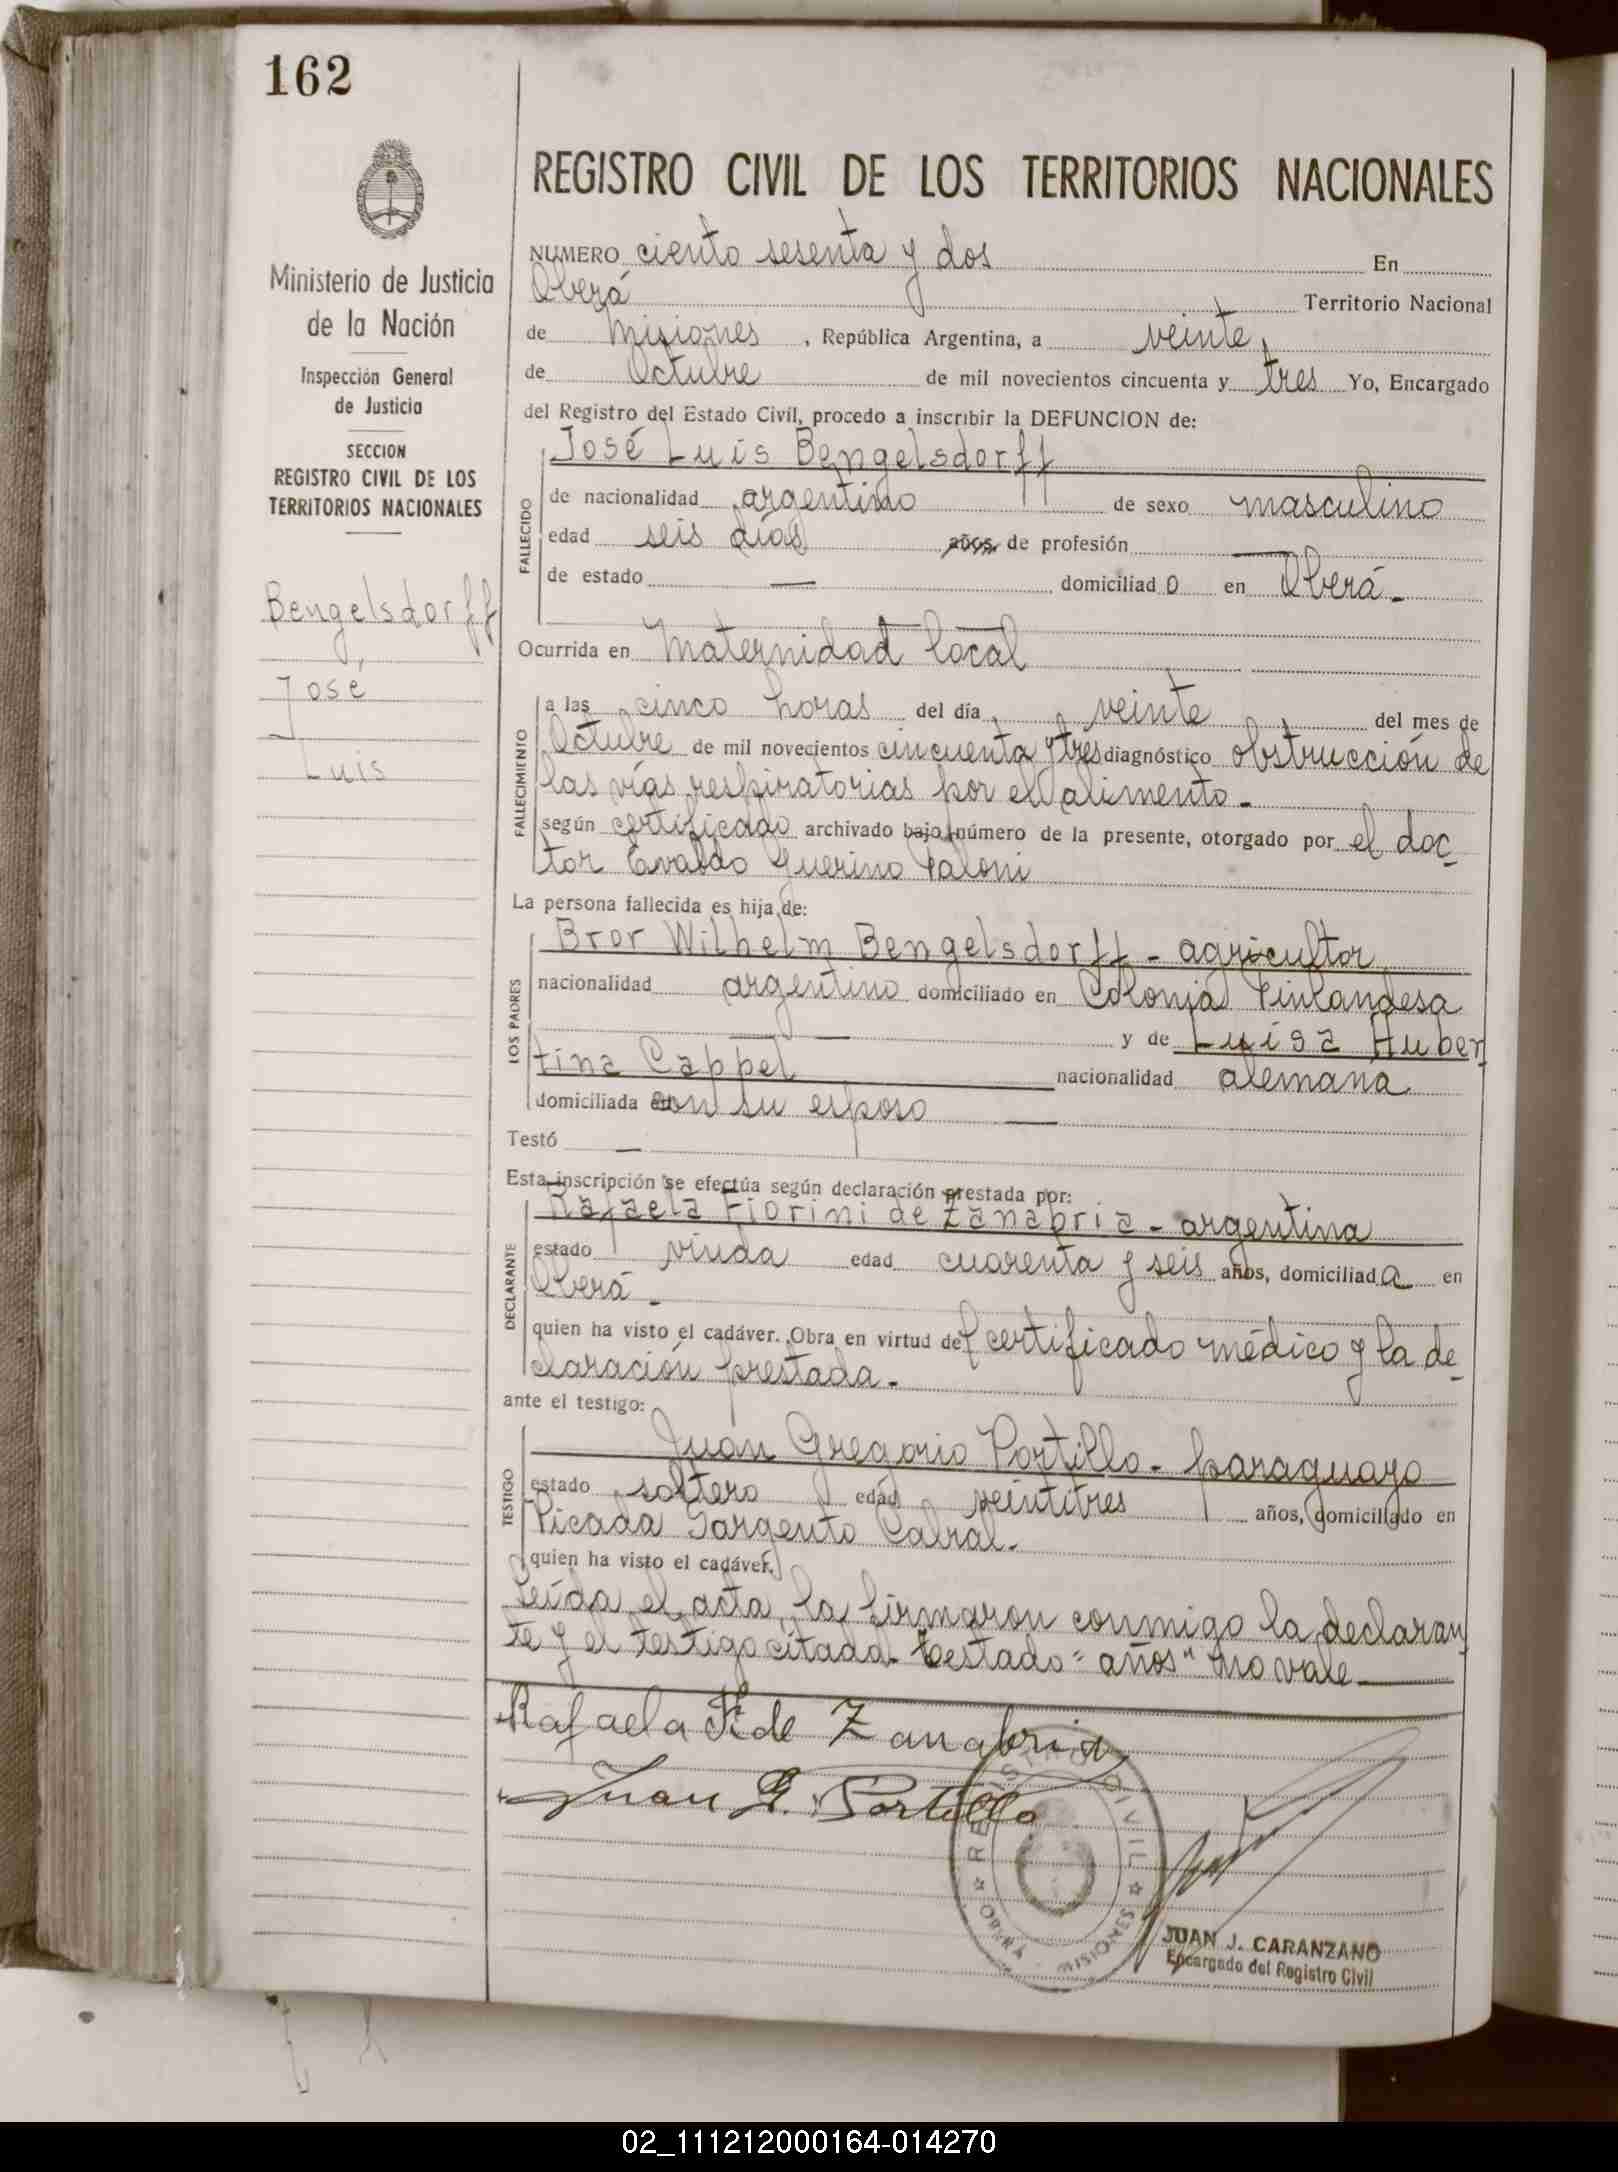 162
REGISTRO CIVIL DE LOS TERRITORIOS NACIONALES
Ministerio de Justicia
de la Nación
Inspección General
de Justicia
SECCION
REGISTRO CIVIL DE LOS
TERRITORIOS NACIONALES
Bengelsdorff
José
Luis
NUMERO ciento sesenta y dos En
Oberá Territorio Nacional
de Misiones , República Argentina, a veinte
de Octubre de mil novecientos cincuenta y tres Yo, Encargado
del Registro del Estado Civil, procedo a inscribir la DEFUNCION de:
FALLECIDO
José Luis Bengelsdorff
de nacionalidad argentino de sexo masculino
edad seis días años de profesión —
de estado — domiciliado en Oberá.-
Ocurrida en Maternidad local
FALLECIMIENTO
a las cinco horas del día veinte del mes de
Octubre de mil novecientos cincuenta y tres diagnóstico obstrucción de
las vías respiratorias por el alimento.-
según certificado archivado bajo número de la presente, otorgado por el doc-
tor Evaldo Guerino Paloni
La persona fallecida es hija de:
LOS PADRES
Bror Wilhelm Bengelsdorff - agricultor
nacionalidad argentino domiciliado en Colonia Finlandesa
— y de Luisa Huber
tina Cappel nacionalidad alemana
domiciliada con su esposo —
Testó —
Esta inscripción se efectúa según declaración prestada por:
DECLARANTE
Rafaela Fiorini de Zanabria - argentina
estado viuda edad cuarenta y seis años, domiciliada en
Oberá.-
quien ha visto el cadáver. Obra en virtud del certificado médico y la de-
claración prestada.-
ante el testigo:
TESTIGO
Juan Gregorio Portillo - paraguayo
estado soltero edad veintitres años, domiciliado en
Picada Sargento Cabral.-
quien ha visto el cadáver.
Leída el acta, la firmaron conmigo la declaran-
te y el testigo citada. Testado "años" no vale —
Rafaela F. de Zanabria
Juan G. Portillo
REGISTRO CIVIL
OBERA - MISIONES
JUAN J. CARANZANO
Encargado del Registro Civil
02_111212000164-014270